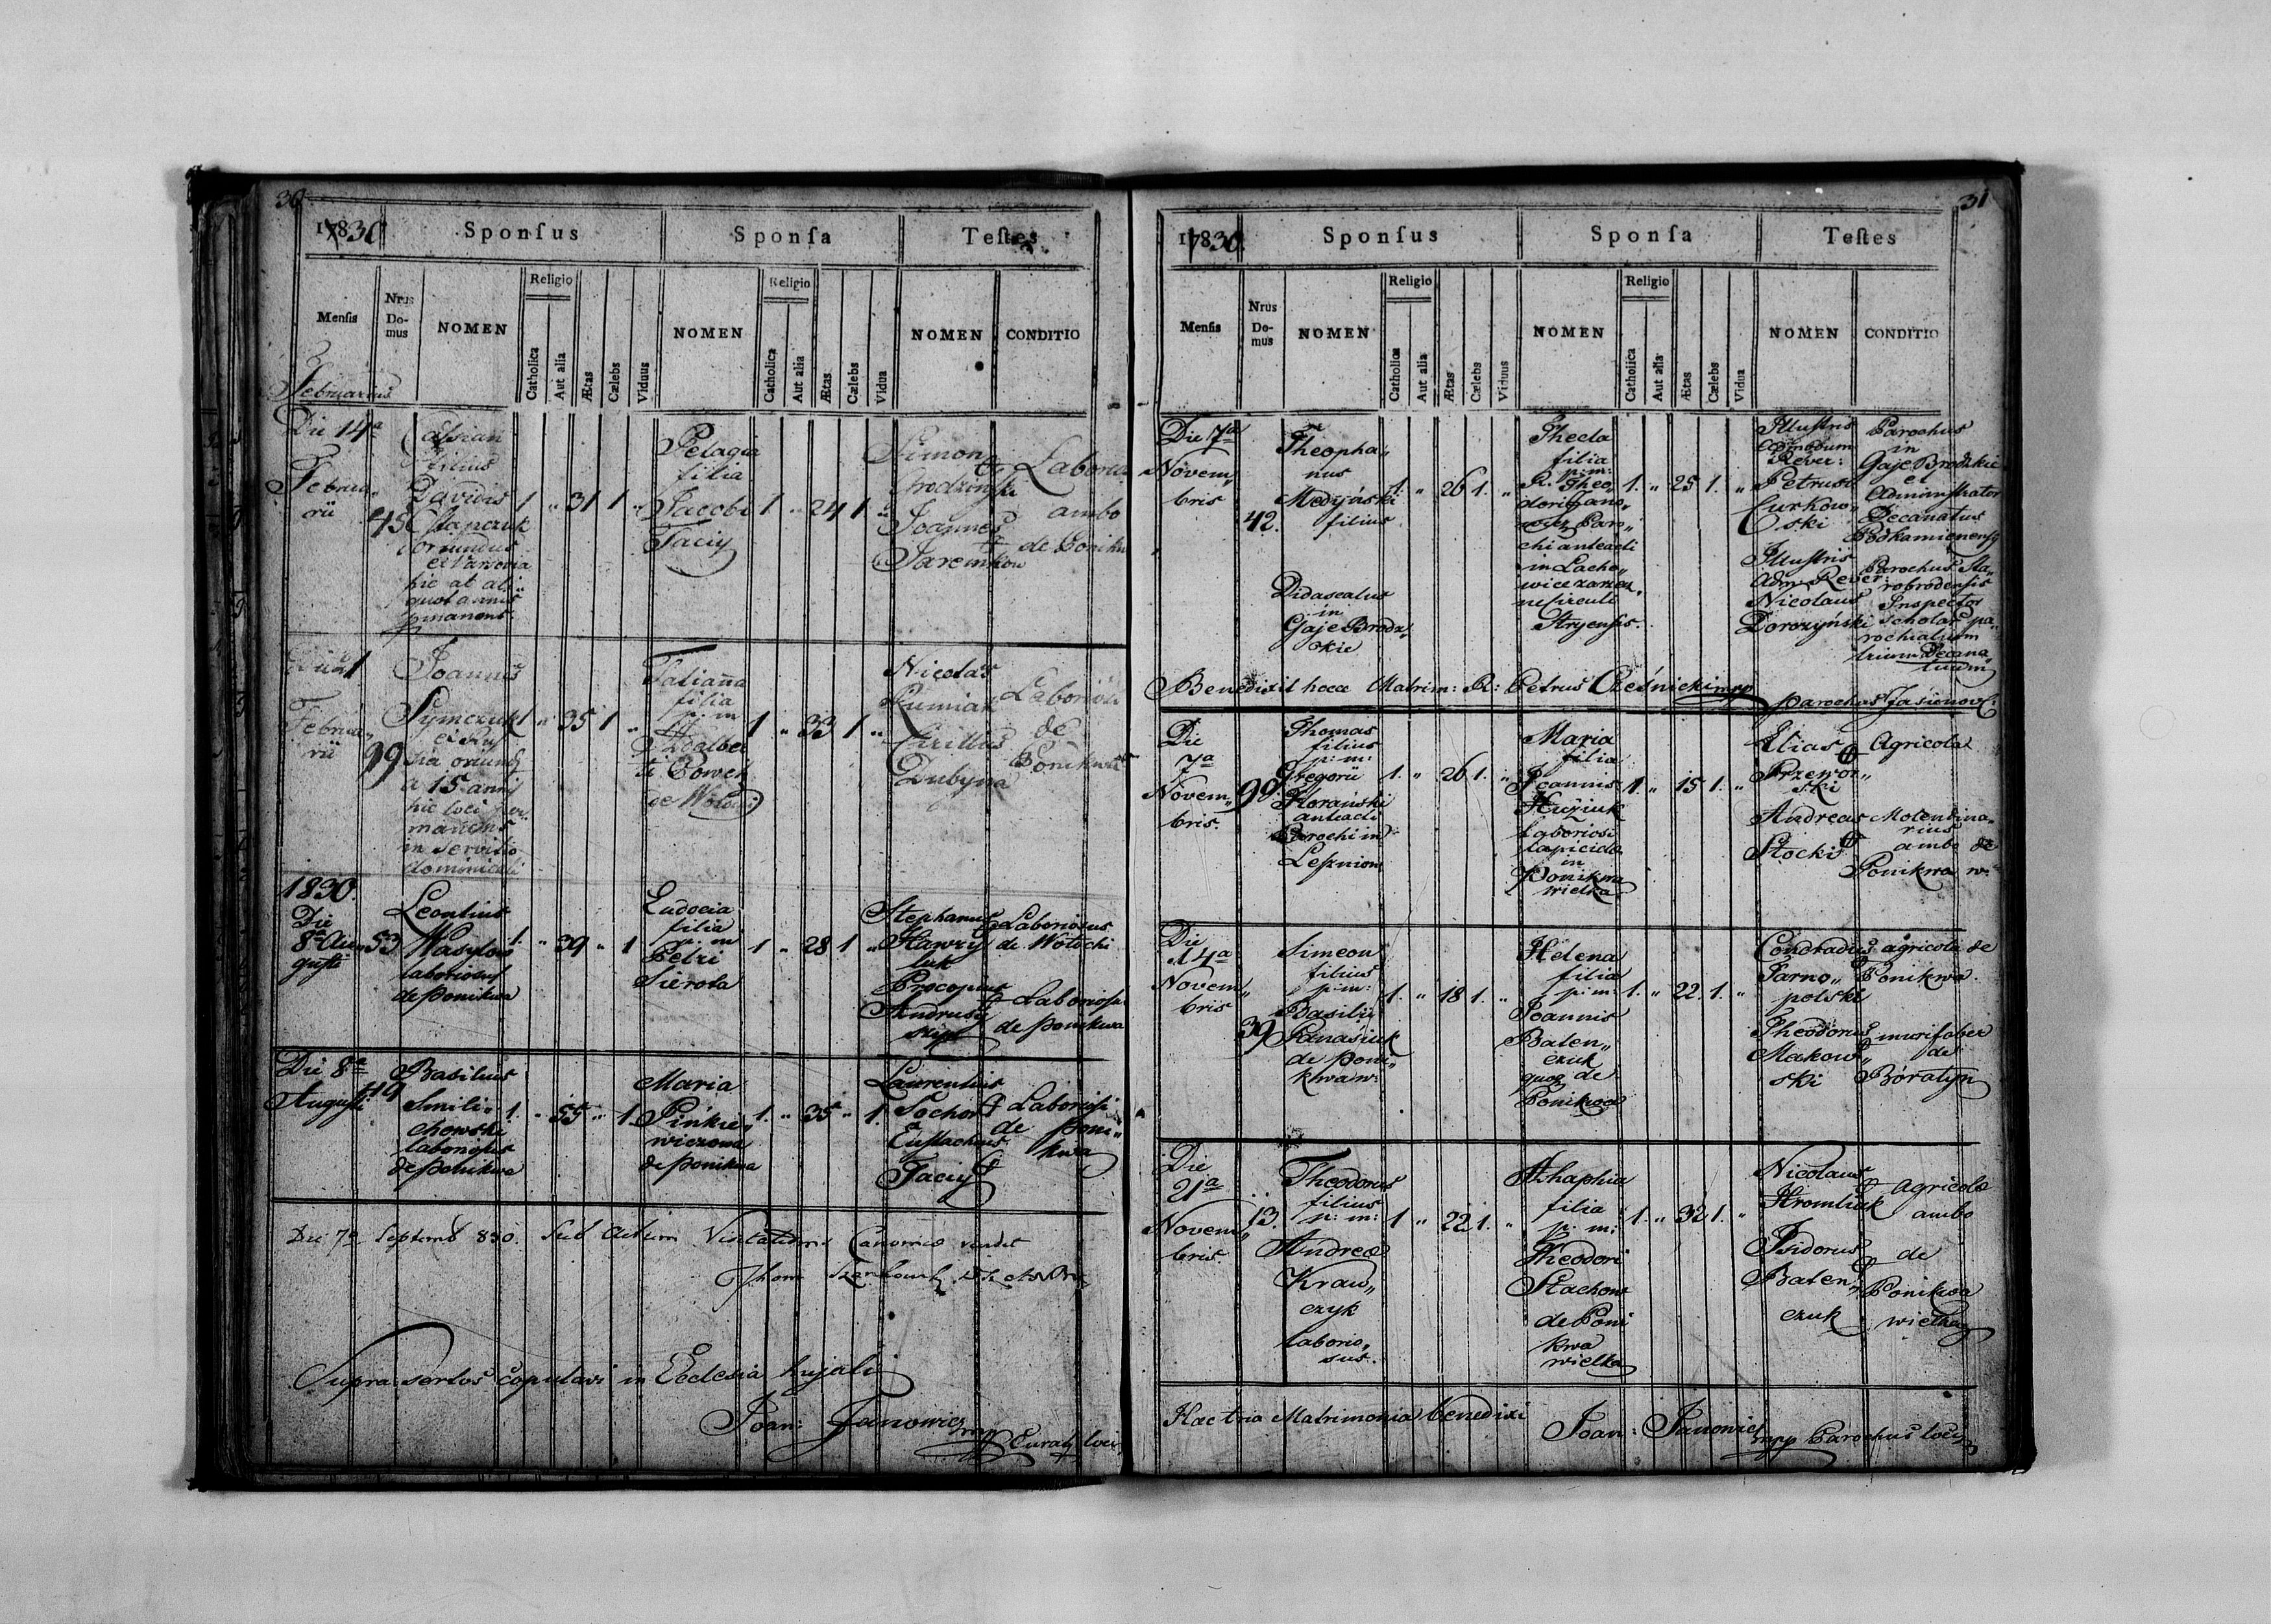 30
1830
Sponſus
Sponſa
Teſtes
Menſis
Nrus Do-mus
NOMEN
Religio
Catholica
Aut alia
Ætas
Cælebs
Viduus
NOMEN
Religio
Catholica
Aut alia
Ætas
Cælebs
Vidua
NOMEN
CONDITIO
Februarius
Die 14a
Februa„
rii
45
filius
Davidis
oriundus
hic ab ali„
quot annis
1 „ 31 1 „
Pelagia
filia
Jacobi
Taciy
1 „ 24 1 „
Simon
Joannes
Laborio
ambo
de Poniku
1
Februa„
rii
99
Joannes
Symczuk
oriund
a 15 annis
hic loci per
manens
in servitio
dominicali
1 „ 35 1 „
Tatianna
filia
p: m
Adalber
ti Powch
de Wolochi
1 „ 33 1 „
Nicolas
Rumiak
Cirillus
Dubyna
Laboriosi
de
Ponikwa
1830.
Die
8a Au
gusti
53
Leontius
Wasylow
laboriosus
de Ponikwa
1. „ 39 „ 1
Eudocia
filia
p: m
Petri
Sierota
1 „ 28 1 „
Stephanus
Hawry
luk
Procopius
Andrusy
Laboriosus
de Wolochi
Laboriosus
de Ponikwa
Die 8a
Augusti
49
Basilius
Smili„
chowski
laboriosus
de Ponikwa
1. „ 55 „ 1
Maria
Pinkie„
wiczowa
de Ponikwa
1. „ 35 „ 1.
Laurentius
Sochor
Eustachius
Taciy
Laboriosi
de Poni„
kwa
Die 7a Septemb 830. Sub actum Visitationis Canonicæ
Supra sertos copulavi in Ecclesia hujati
Joan: Janowicz mpp Curat loci
31
1830.
Sponſus
Sponſa
Teſtes
Menſis
Nrus Do-mus
NOMEN
Religio
Catholica
Aut alia
Ætas
Cælebs
Viduus
NOMEN
Religio
Catholica
Aut alia
Ætas
Cælebs
Vidua
NOMEN
CONDITIO
Die 7a
Novem„
bris
42.
Theopha„
nus
Medyński
filius
Didascalus
in
Gaje Brodz„
kie
1. „ 26 1. „
Thecla
filia
p: m:
R. Theo„
dori Jano„
wicz Paro„
chi anteacti
in Lacho„
wice zarzecz„
ne Circuli
Stryensis.
1. „ 25 1. „
Illustris
admodum
Rever:
Petrus
Curkow„
ski
Illustris
Adm: Rever:
Nicolaus
Dorozyński
Parochus
in
Gaje Brodzkie
et
Administrator
Decanatus
Podkamienensis
Parochus Sta„
robrodensis
Inspector
Scholar pa„
rochialium
trium Decana„
tuum
Benedixit hocce Matrim: R: Petrus Cześnicki mpp
parochus Jasionov:
Die
7a
Novem„
bris.
99.
Thomas
filius
p: m:
Gregorii
Horański
anteacti
Parochi in
Leszniow
1. „ 26 1. „
Maria
filia
Joannis
laboriosi
lapicidæ
in
Ponikwa
wielka
1. „ 15 1. „
Elias
Przewoz„
ski
Andreas
Stocki
Agricola
Molendina„
rius
ambo de
Ponikwa w:
Die
14a
Novem„
bris
39
Simeon
filius
p: m:
Basilii
Panasiuk
de Poni„
kwa w:
1. „ 18 1. „
Helena
filia
p: m:
Joannis
Baten„
czuk
quoq de
Ponikwa
1. „ 22. 1. „
Condradius
Tarno„
polski
Theodorus
Makow„
ski
agricola de
Ponikwa.
murifaber
de
Boratyn
Die
21a
Novem„
bris.
13.
Theodorus
filius
p: m:
Andreæ
Kraw„
czyk
laborio„
sus.
1 „ 22 1. „
Ahaphia
filia
p: m:
Theodori
Stachow
de Poni
kwa
wielka
1. „ 32 1. „
Nicolaus
Hromluk
Isidorus
Baten„
czuk
agricolæ
ambo
de
Ponikwa
wielka
Hac tria Matrimonia benedixi Joan: Janowicz mpp Parochus loci